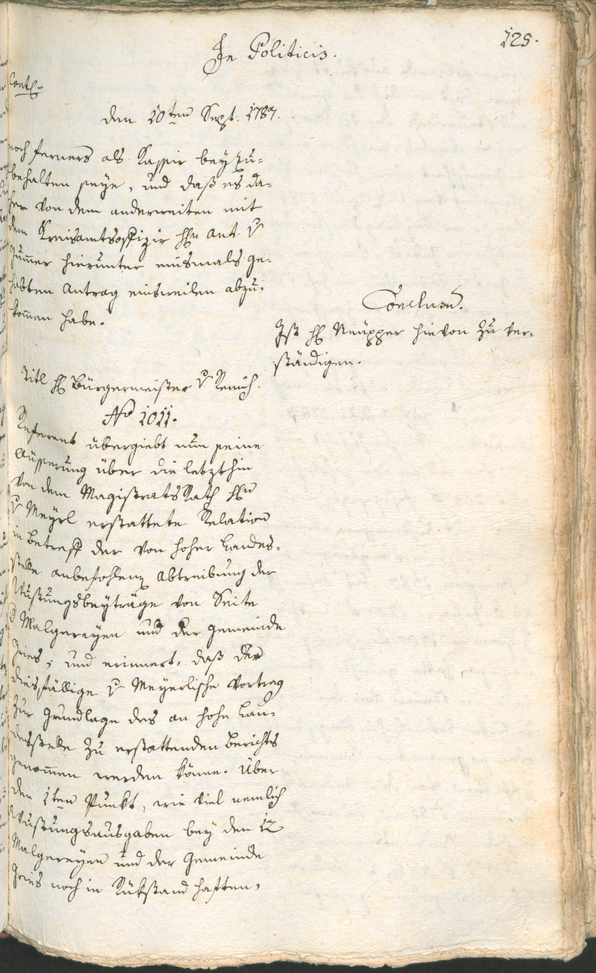 In Politicis.
125.
den 10ten Sept. 1787.
noch ferners als Kassir beyzu-
behalten seye, und daß es da-
her von dem anderweiten mit
dem Kreisamtsoffizir H. Ant. v
hierunter einsmals ge-
habten Antrag einsweilen abzu-
kommen habe.
Conclusum.
Ist H. Neupper hievon zu ver-
ständigen.
Titl H. Bürgermeister v
No 1011.
Referent übergiebt nun seine
Äusserung über die letzthin
von dem Magistrats Rath H.
v Meyrl erstattete Relation
in Betreff der von hoher Landes-
stelle anbefohlenen Abtreibung der
Rüstungsbeyträge von Seite
Malgereyen und der Gemeinde
Gries; und erinnert, daß der
diesfällige v Meyrlische Vortrag
zur Grundlage des an hohe Lan-
desstelle zu erstattenden Berichts
genommen werden könne. Über
den 1ten Punkt, wie viel nemlich
Rüstungsausgaben bey den 12
Malgereyen und der Gemeinde
Gries noch in Rükstand haften,